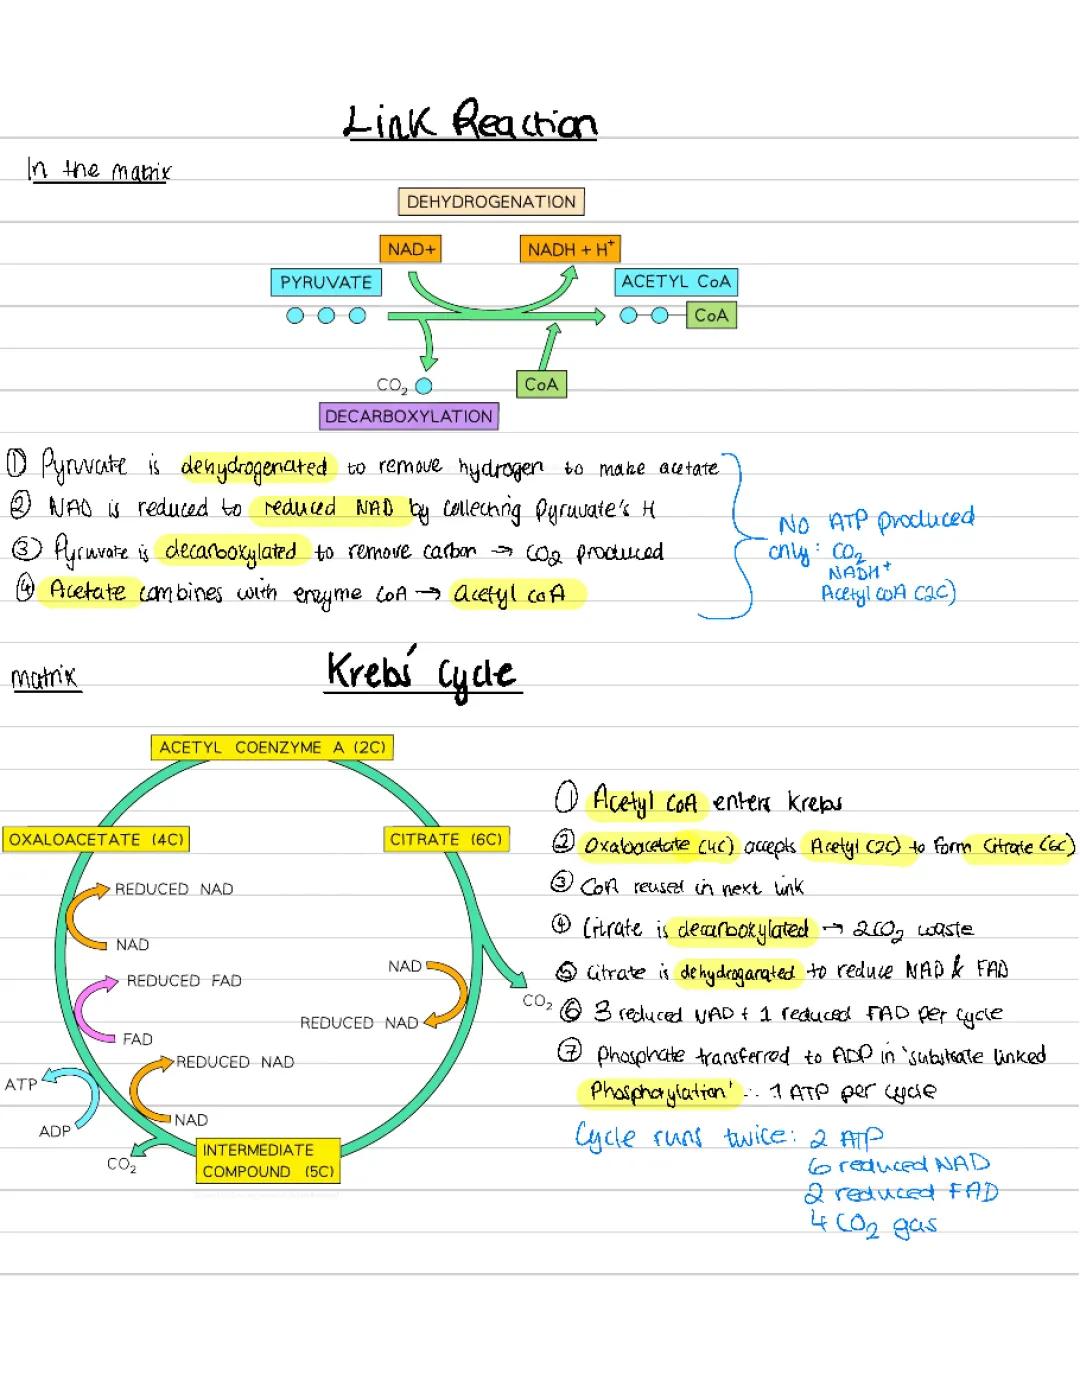 Link Reaction
In the matrix
DEHYDROGENATION
NAD+
NADH + H⁺
PYRUVATE
ACETYL CoA
CoA
CO₂
CoA
DECARBOXYLATION
① Pyruvate is dehydrogenated to remove hydrogen to make acetate
② NAD is reduced to reduced NAD by collecting Pyruvate's H
③ Pyruvate is decarboxylated to remove carbon → CO₂ produced
④ Acetate combines with enzyme CoA → acetyl coA
No ATP produced
only: CO₂
NADH⁺
Acetyl coA (2C)
matrix
Krebs' Cycle
ACETYL COENZYME A (2C)
OXALOACETATE (4C)
CITRATE (6C)
REDUCED NAD
NAD
REDUCED FAD
FAD
NAD
REDUCED NAD
CO₂
REDUCED NAD
NAD
ATP
ADP
CO₂
INTERMEDIATE
COMPOUND (5C)
① Acetyl CoA enters Krebs
② Oxaloacetate (4C) accepts Acetyl (2C) to form Citrate (6C)
③ CoA reused in next link
④ Citrate is decarboxylated → 2CO₂ waste
⑤ Citrate is dehydroganated to reduce NAD & FAD
⑥ 3 reduced NAD + 1 reduced FAD per cycle
⑦ Phosphate transferred to ADP in 'substrate linked
Phosphorylation' ∴ 1 ATP per cycle
Cycle runs twice: 2 ATP
6 reduced NAD
2 reduced FAD
4 CO₂ gas